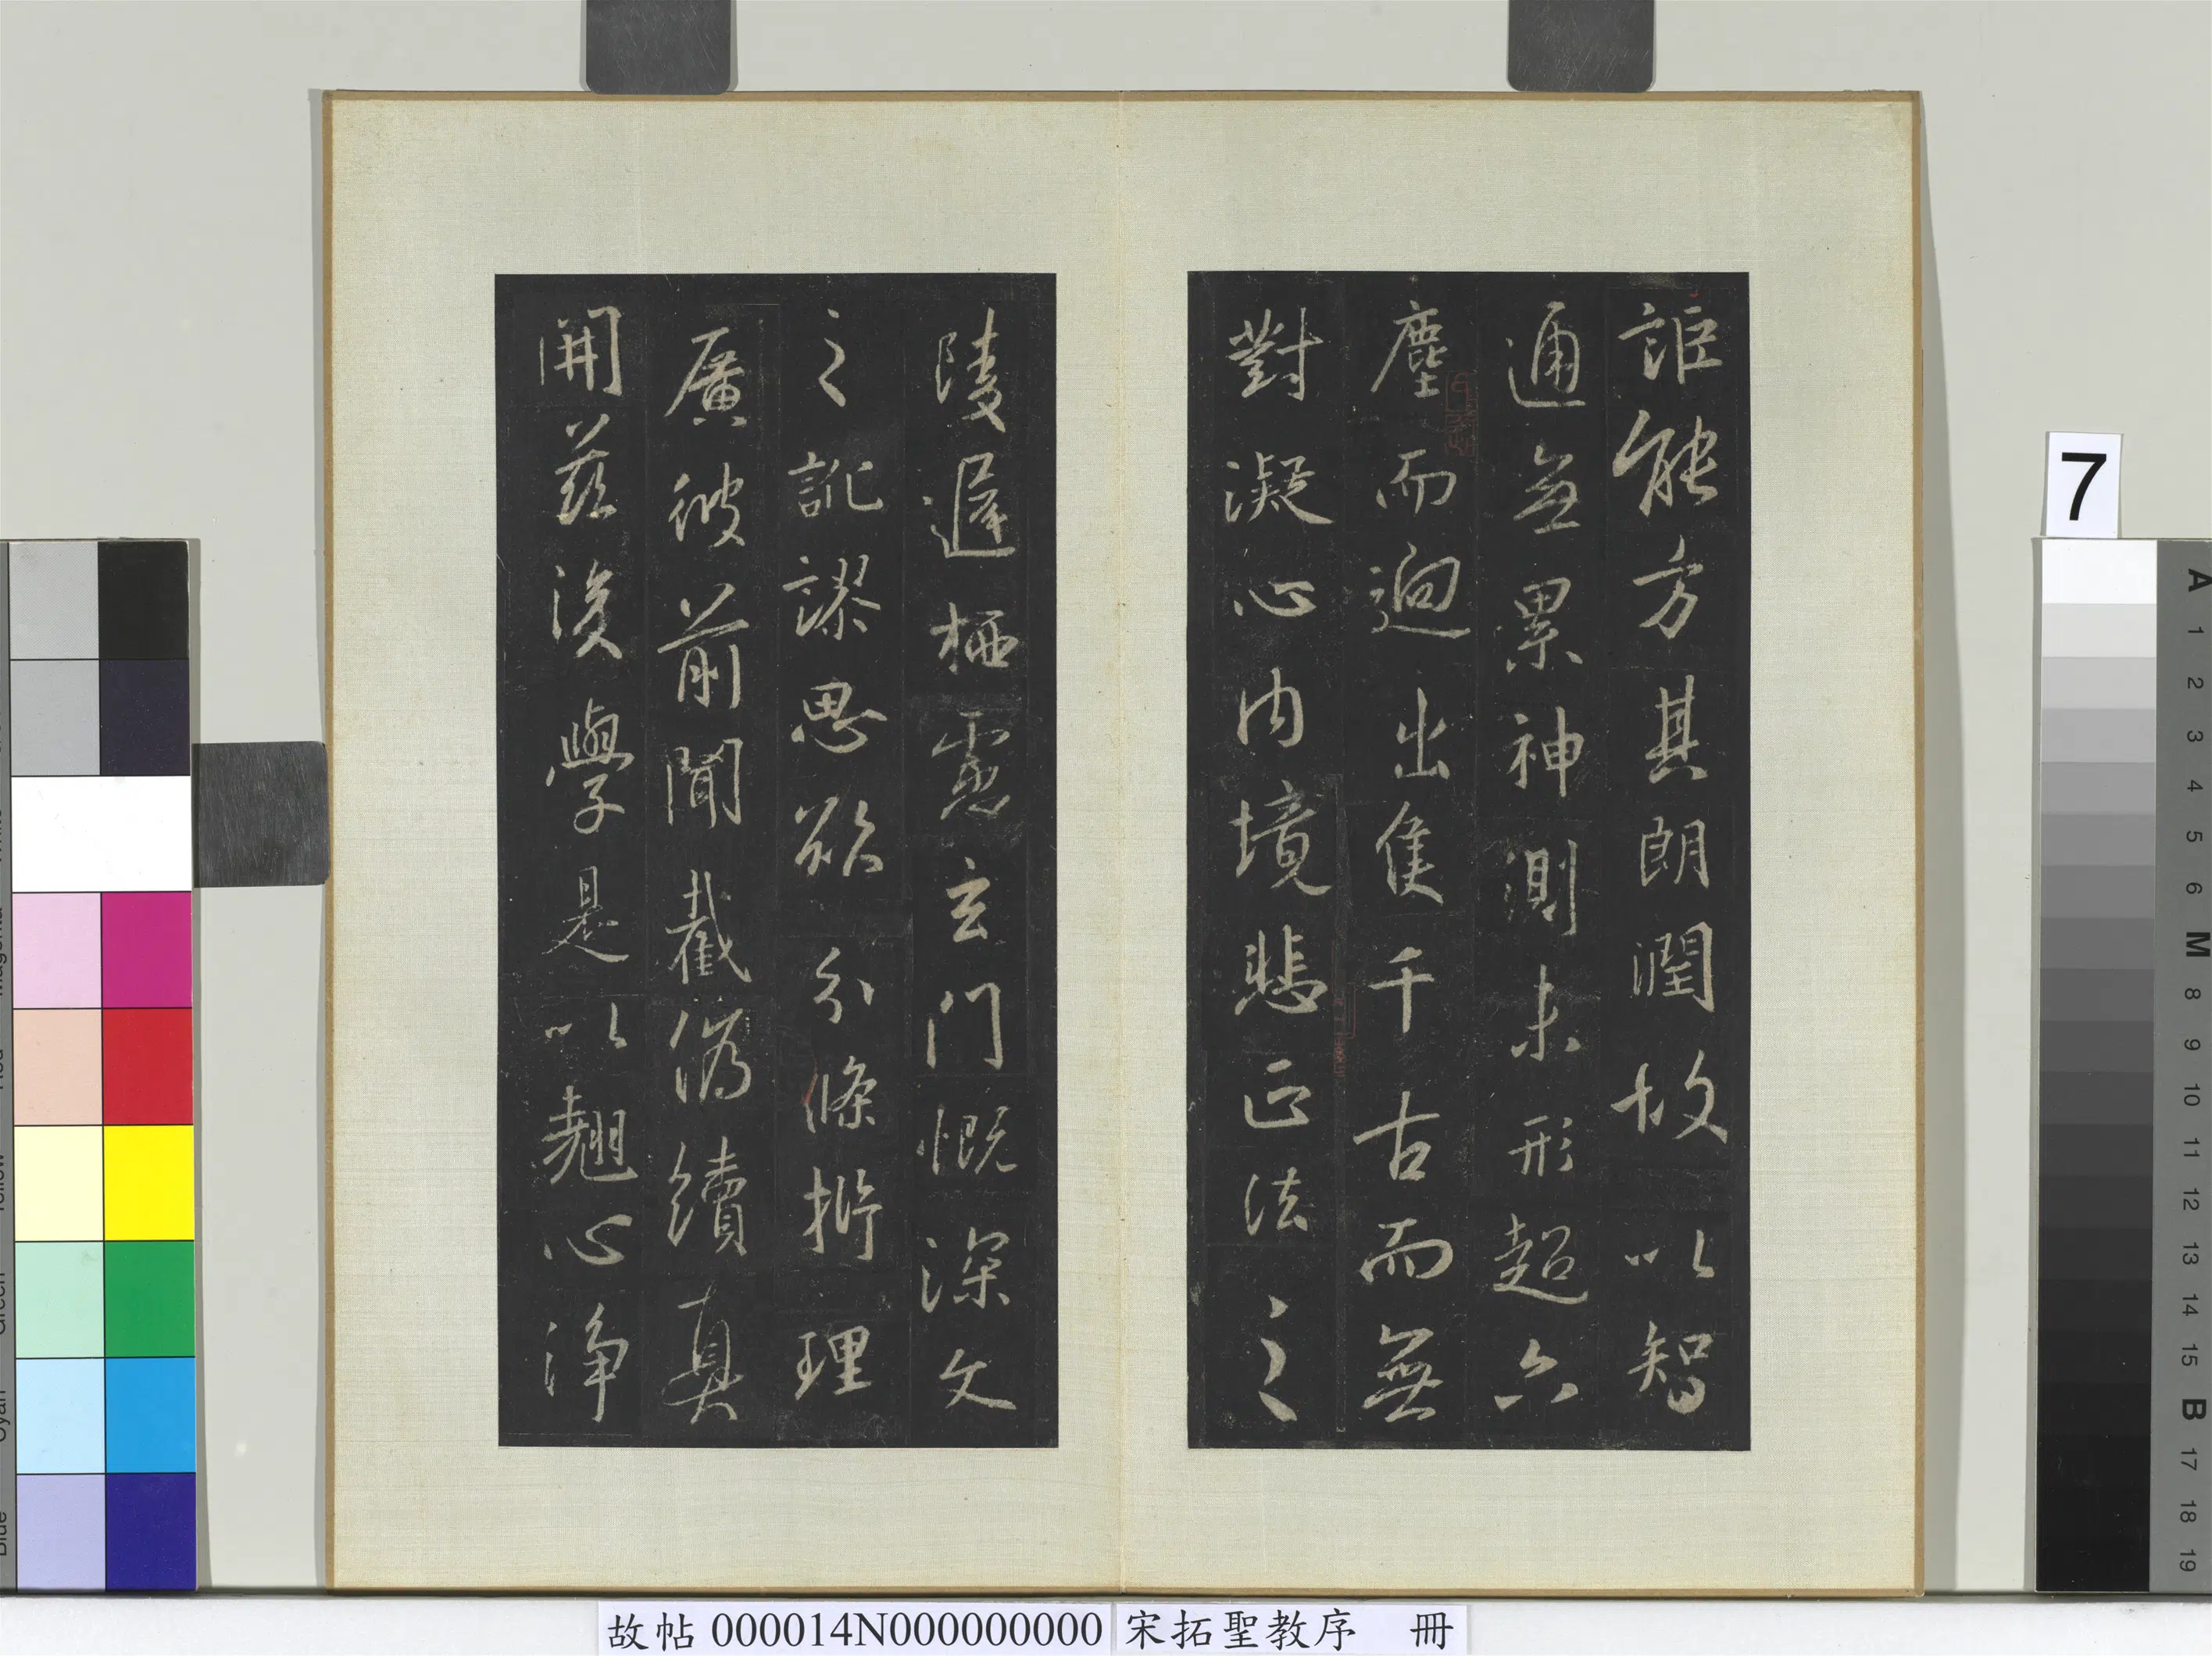 詎能方其朗潤故以智
通無累神測未形超六
塵而逈出隻千古而無
對凝心內境悲正法之
陵遲栖慮玄門慨深文
之訛謬思欲分條析理
廣彼前聞截偽續真
開茲後學是以翹心淨
7
A
1
2
3
4
5
6
M
8
9
10
11
12
13
14
15
B
17
18
19
故帖 000014N000000000 宋拓聖教序 冊